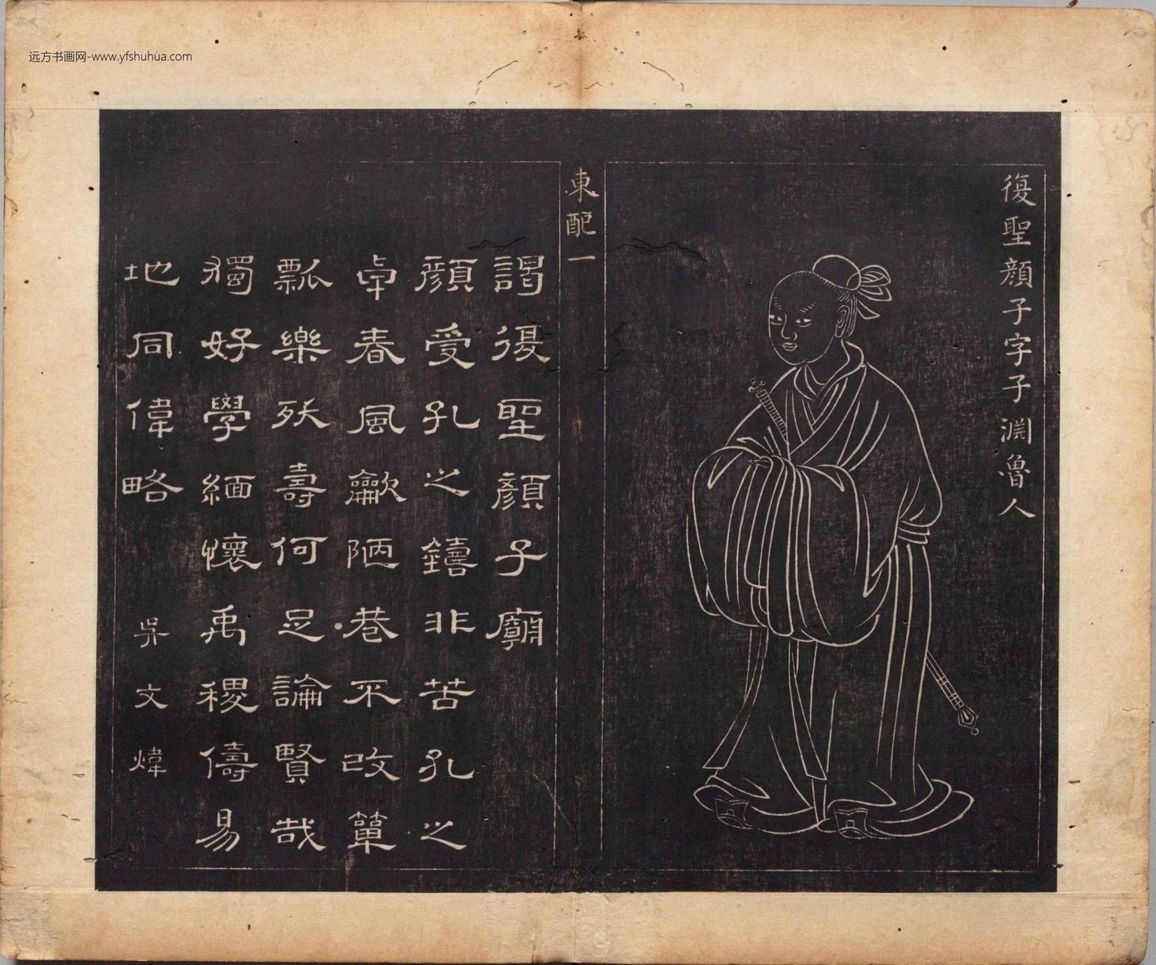 远方书画网-www.yfshuhua.com
復聖顏子字子渊魯人
東配一
謁復聖顏子廟
顏受孔之鑄非苦孔之
卓春風龡陋巷不改簞
瓢樂殀壽何足論賢哉
獨好學緬懷禹稷儔易
地同偉略 吳文煒